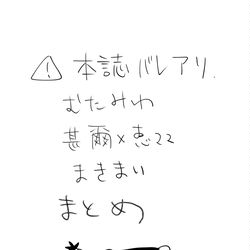 ⚠ 本誌バレアリ.
むたみわ
甚爾×恵22
まきまい
まとめ